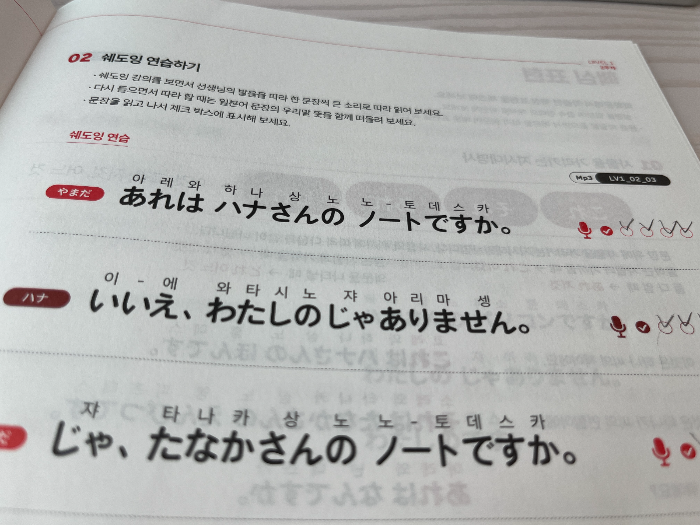 02 쉐도잉 연습하기
· 쉐도잉 강의를 보면서 선생님의 발음을 따라 한 문장씩 큰 소리로 따라 읽어 보세요.
· 다시 들으면서 따라 할 때는 일본어 문장의 우리말 뜻을 함께 떠올려 보세요.
· 문장을 읽고 나서 체크 박스에 표시해 보세요.
쉐도잉 연습
Mp3 LV1_02_03
아 레 와 하 나 상 노 노 - 토 데 스 카
やまだ あれは ハナさんの ノートですか。
이 - 에 와 타 시 노 쟈 아 리 마 셍
ハナ いいえ、わたしのじゃありません。
쟈 타 나 카 상 노 노 - 토 데 스 카
だ じゃ、たなかさんの ノートですか。